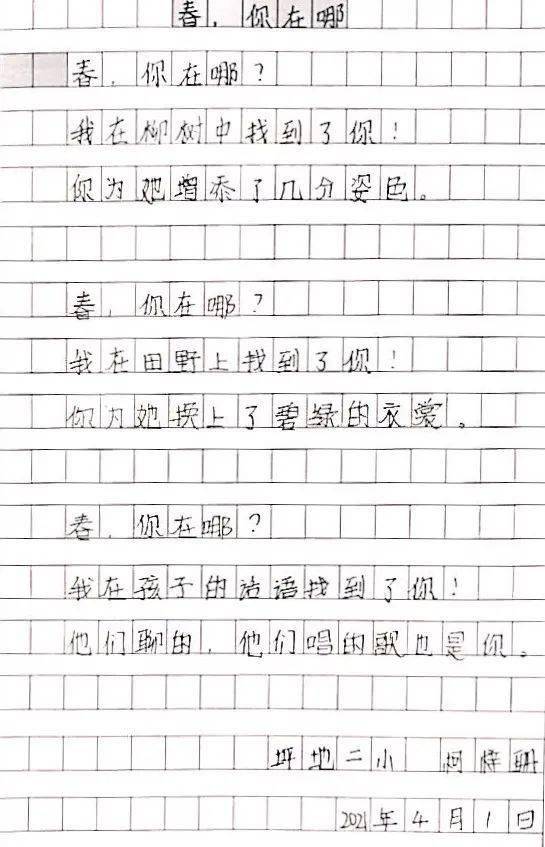 春，你在哪
春，你在哪？
我在柳树中找到了你！
你为她增添了几分姿色。
春，你在哪？
我在田野上找到了你！
你为她换上了碧绿的衣裳。
春，你在哪？
我在孩子的话语找到了你！
他们聊的，他们唱的歌也是你。
坪地二小 柯梓珊
2021年4月1日